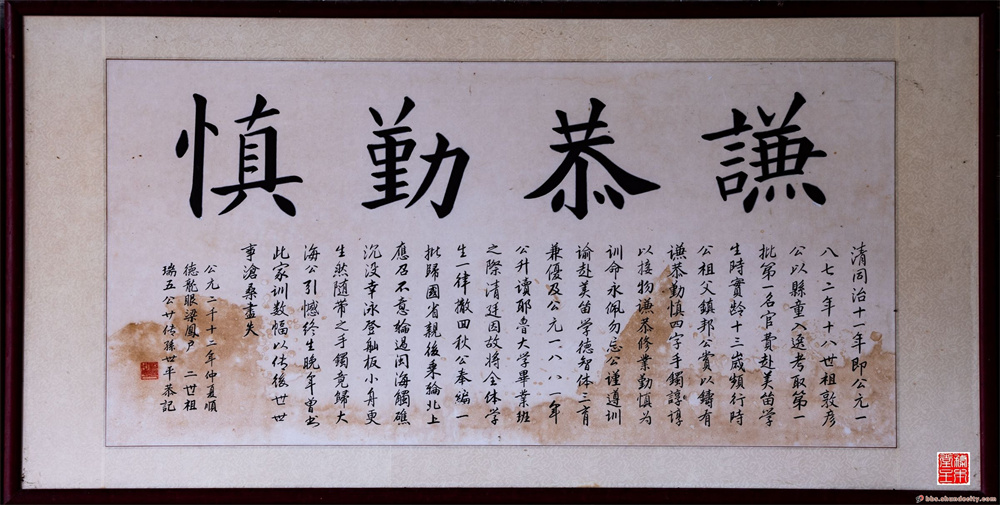 謙恭勤慎
清同治十一年即公元一
八七二年十八世祖敦彦
公以縣童入選考取第一
批第一名官費赴美笛學
生時實齡十三歲頻行時
公祖父鎮邦公賞以鑄有
謙恭勤慎四字手鐲諄諄
以接物謙恭修業勤慎為
訓命永佩勿忘公謹遵訓
谕赴美笛學德智体三育
兼優及公元一八八一年
公升讀耶魯大學畢業班
之際清廷因故將全体學
生一律撤回秋公奉編一
批歸國省親後乗輪北上
應召不意輪過閩海觸礁
沉没幸泳登舢板小舟更
生然隨帶之手鐲竟歸大
海公引憾終生晚年曾书
此家訓数幅以传後世世
事滄桑盡失
公元二千十二年仲夏順
德龍眼梁鳳户 二世祖
瑞五公廿传孫世平恭記
bbs.shundecity.com